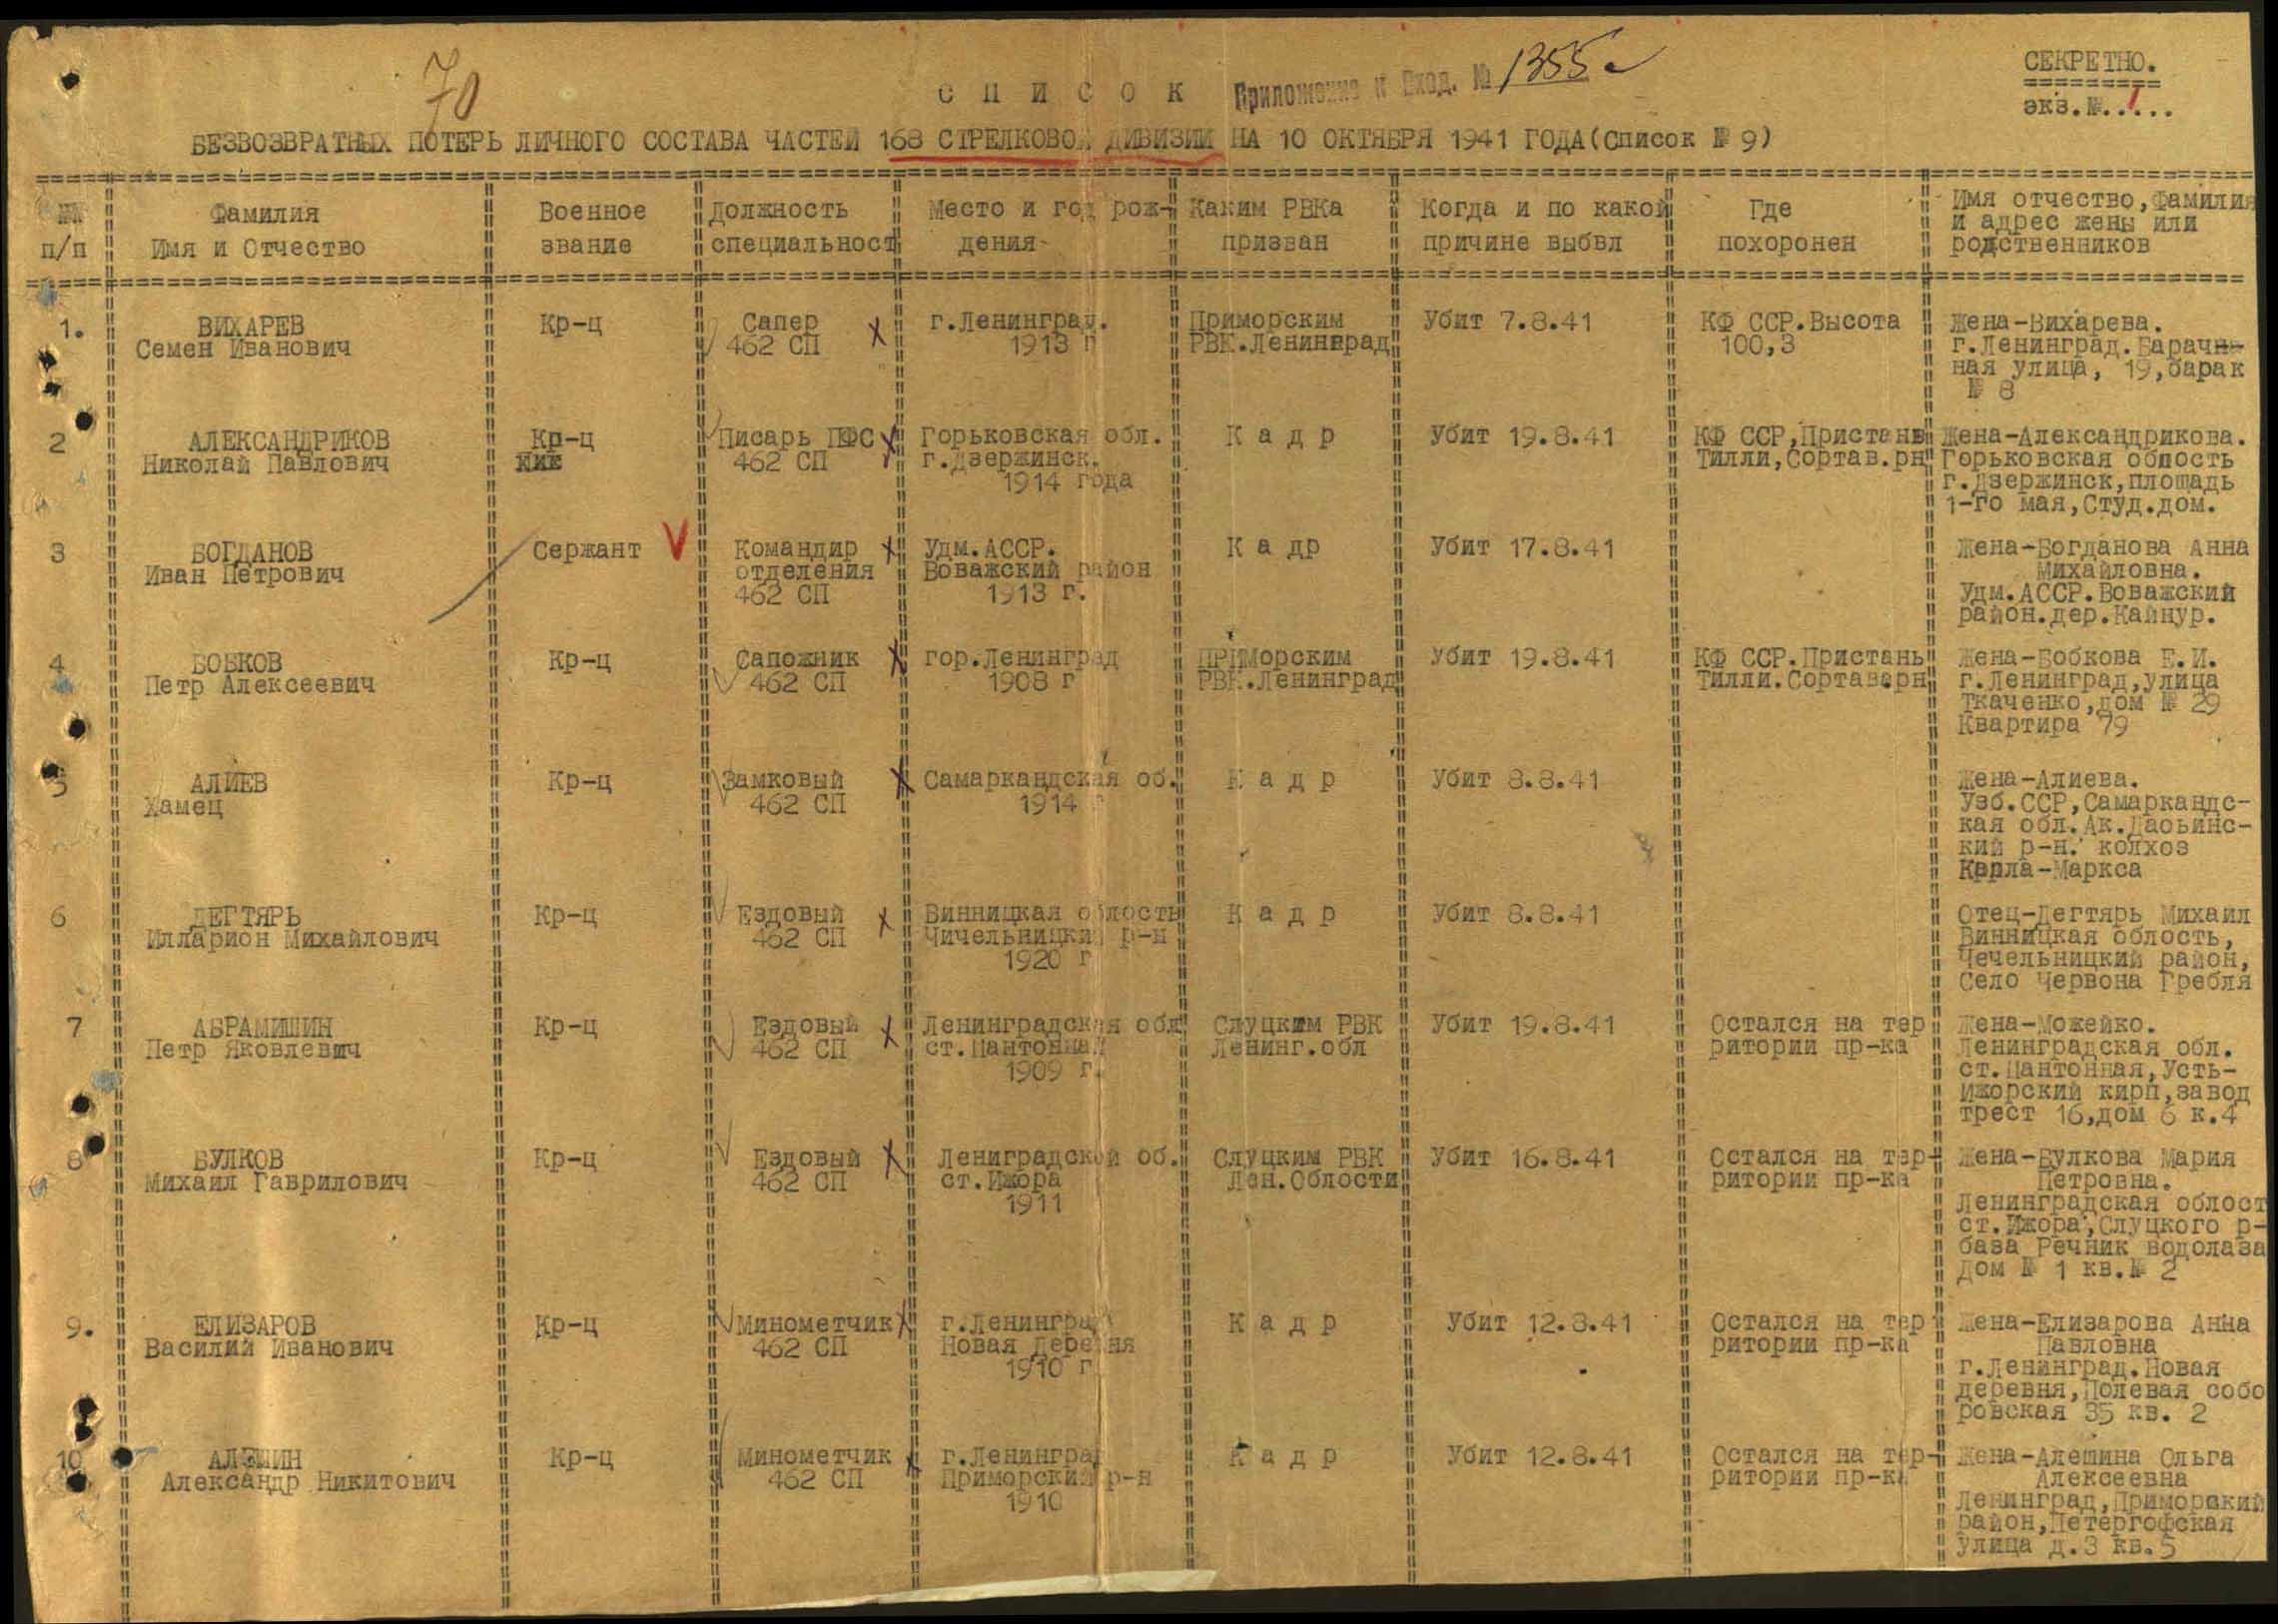 70
СПИСОК
Приложение к Вход. № 1355с
СЕКРЕТНО.
экз.№.1...
БЕЗВОЗВРАТНЫХ ПОТЕРЬ ЛИЧНОГО СОСТАВА ЧАСТЕЙ 168 СТРЕЛКОВОЙ ДИВИЗИИ НА 10 ОКТЯБРЯ 1941 ГОДА(Список № 9)
№№ п/п
Фамилия
Имя и Отчество
Военное
звание
Должность
специальност
Место и год рож-
дения
Каким РВКа
призван
Когда и по какой
причине выбвл
Где
похоронен
Имя отчество,Фамилия
и адрес жены или
родственников
1.
ВИХАРЕВ
Семен Иванович
Кр-ц
Сапер
462 СП
г.Ленинград.
1913 г
Приморским
РВК.Ленинград
Убит 7.8.41
КФ ССР.Высота
100,3
Жена-Вихарева.
г.Ленинград.Барач
ная улица, 19,барак
№ 8
2
АЛЕКСАНДРИКОВ
Николай Павлович
Кр-ц
Писарь ПФС
462 СП
Горьковская обл.
г.Дзержинск.
1914 года
К а д р
Убит 19.8.41
КФ ССР,Пристань
Тилли,Сортав.рн
Жена-Александрикова.
Горьковская область
г.Дзержинск,площадь
1-го мая,Студ.дом.
3
БОГДАНОВ
Иван Петрович
Сержант
Командир
отделения
462 СП
Удм.АССР.
Воважский район
1913 г.
К а др
Убит 17.8.41
Жена-Богданова Анна
Михайловна.
Удм.АССР.Воважский
район.дер.Кайнур.
4
БОБКОВ
Петр Алексеевич
Кр-ц
Сапожник
462 СП
гор.Ленинград
1908 г
ПРИМорским
РВК.Ленинград
Убит 19.8.41
КФ ССР.Пристань
Тилли.Сортаварн
Жена-Бобкова Е.И.
г.Ленинград,улица
Ткаченко,дом № 29
Квартира 79
5
АЛИЕВ
Хамец
Кр-ц
Замковый
462 СП
Самаркандская об.
1914 г
К а д р
Убит 8.8.41
Жена-Алиева.
Узб.ССР,Самаркандс-
кая обл.Ак.Даоьинс-
кий р-н. колхоз
Карла-Маркса
6
ДЕГТЯРЬ
Илларион Михайлович
Кр-ц
Ездовый
462 СП
Винницкая облость
Чичельницкий р-н
1920 г
К а д р
Убит 8.8.41
Отец-Дегтярь Михаил
Винницкая облость,
Чечельницкий район,
Село Червона Гребля
7
АБРАМИШИН
Петр Яковлевич
Кр-ц
Ездовый
462 СП
Ленинградская обл
ст.Пантонная
1909 г.
Слуцким РВК
Ленинг.обл
Убит 19.8.41
Остался на тер
ритории пр-ка
Жена-Можейко.
Ленинградская обл.
ст.Пантонная,Усть-
Ижорский кирп,завод
трест 16,дом 6 к.4
8
БУЛКОВ
Михаил Гаврилович
Кр-ц
Ездовый
462 СП
Лениградской об.
ст.Ижора
1911
Слуцким РВК
Лен.Облости
Убит 16.8.41
Остался на тер-
ритории пр-ка
Жена-Булкова Мария
Петровна.
Ленинградская облост
ст.Ижора,Слуцкого р-
база Речник водолаза
дом № 1 кв.№ 2
9.
ЕЛИЗАРОВ
Василий Иванович
Кр-ц
Минометчик
462 СП
г.Ленинград
Новая Деревня
1910 г
К а д р
Убит 12.8.41
Остался на тер
ритории пр-ка
Жена-Елизарова Анна
Павловна
г.Ленинград.Новая
деревня,Полевая собо
ровская 35 кв. 2
10
АЛЕШИН
Александр Никитович
Кр-ц
Минометчик
462 СП
г.Ленинград
Приморский р-н
1910
К а д р
Убит 12.8.41
Остался на тер-
ритории пр-ка
Жена-Алешина Ольга
Алексеевна
Ленинград,Приморский
район,Петергофская
улица д.3 кв.5